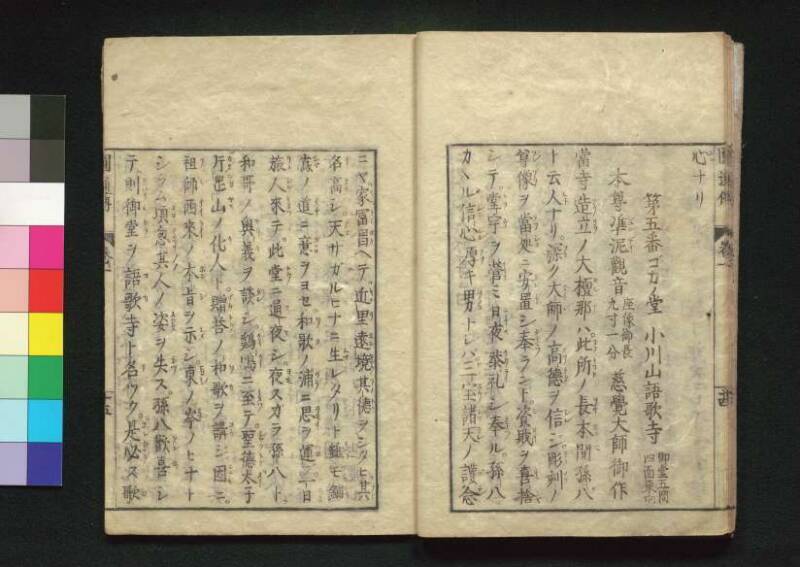 心ナリ
第五番ゴカノ堂　小川山語歌寺　御堂五間四面東向
本尊準泥觀音　座像御長九寸一分　慈覺大師御作
當寺造立ノ大檀那ハ此所ノ長本間孫八
ト云人ナリ深ク大師ノ高德ヲ信シ彫刻ノ
尊像ヲ當処ニ安置シ奉ラント資戝ヲ喜捨
シテ堂宇ヲ營ミ日夜崇礼シ奉ル孫八
カヽル信心厚キ男トレハ三宝諸天ノ護念
ニヤ家冨昌ヘテ近里遠境其德ヲシタヒ其
名高シ天サガルヒナニ生レタリト雖モ鋪
嶌ノ道ニ意ヲヨセ和歌ノ浦ニ思ヲ運ニ一日
旅人來テ此堂ニ通夜シ夜スガラ孫八ト
和哥ノ奥義ヲ談シ鷄鳴ニ至テ聖德太子
片岡山ノ化人ト贈答ノ和歌ヲ講シ因ニ
祖師西來ノ本旨ヲ示シ東ノ岑ノ
頃忽其人ノ姿ヲ失ス孫八歡喜シ
テ則御堂ヲ語歌寺ト名ツク是必ス歌